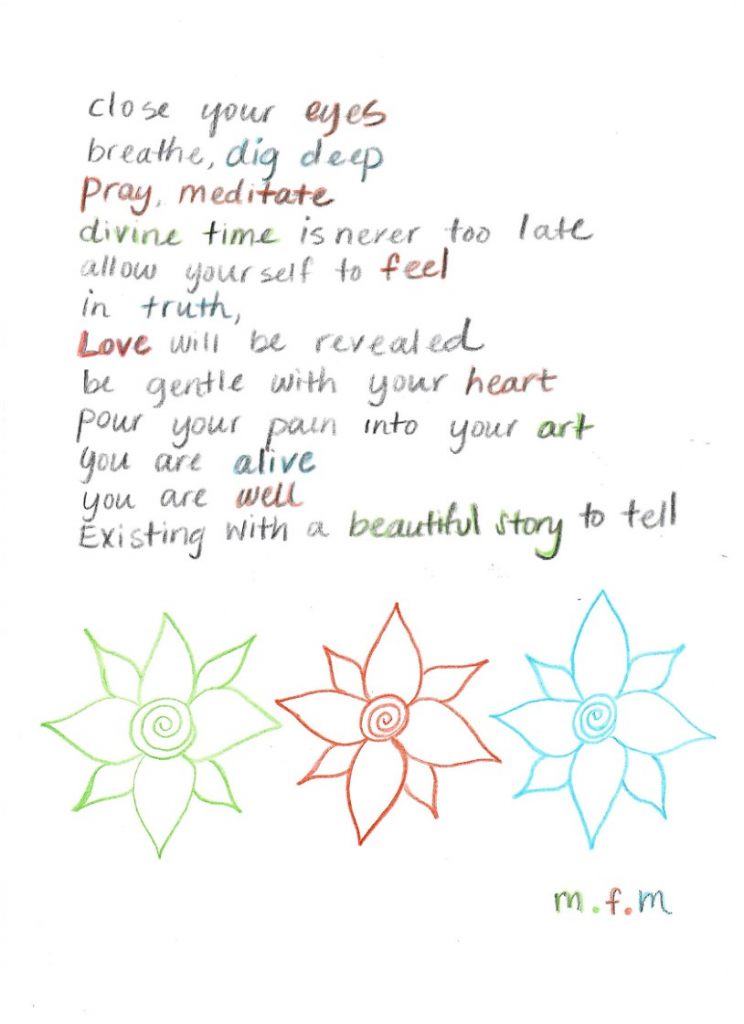 close your eyes
breathe, dig deep
Pray, meditate
divine time is never too late
allow yourself to feel
in truth,
Love will be revealed
be gentle with your heart
pour your pain into your art
you are alive
you are well
Existing with a beautiful story to tell
m.f.m